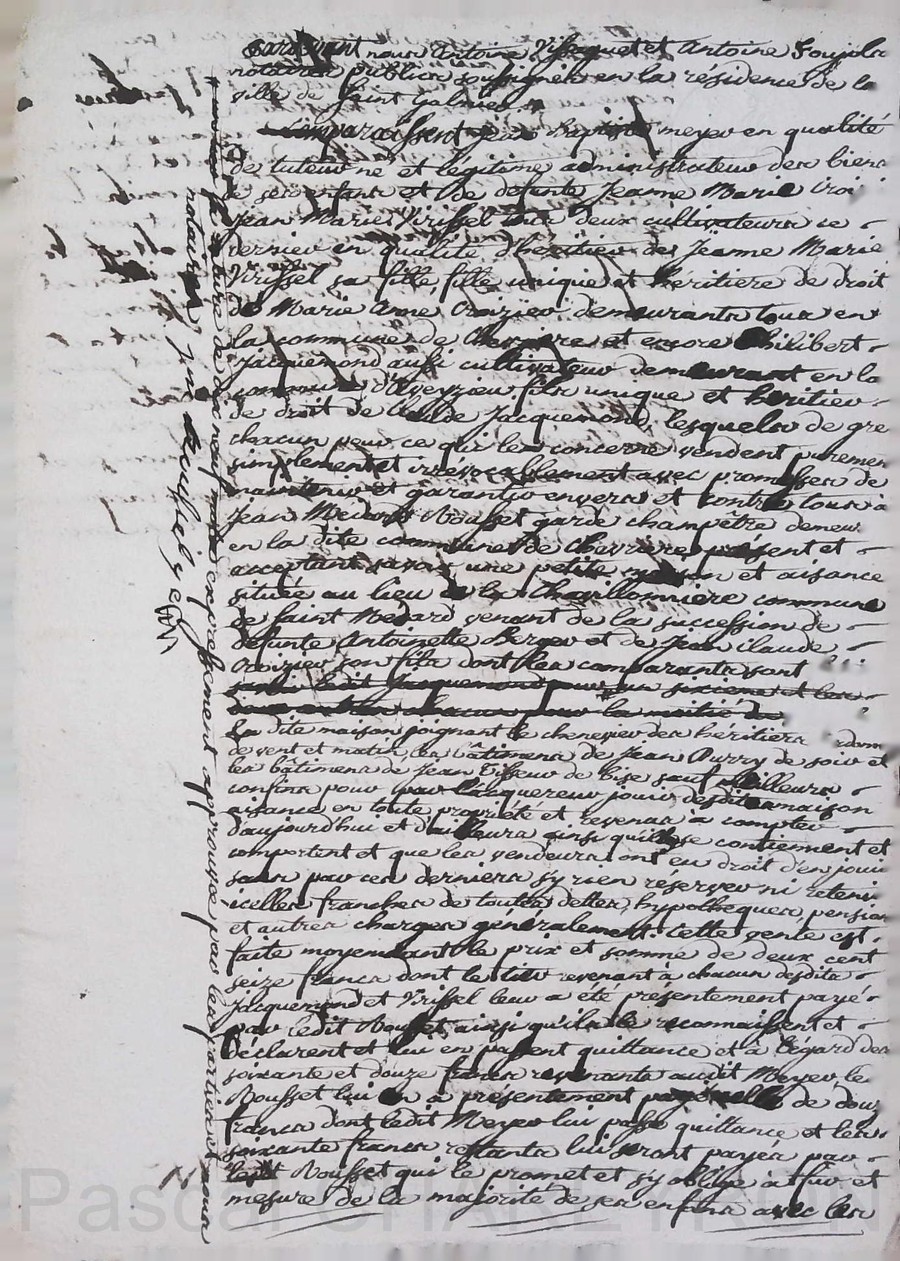 Pardevant nous Antoine Vissaguet et Antoine Soujola
notaires publics soussignés en la résidence de la
ville de Saint Galmier
Comparaissent Jean Baptiste meyer en qualité
de tuteur né et légitime administrateur des biens
de ses enfants et de defunte Jeanne Marie
Jean Marie Virissel tous deux cultivateurs ce
dernier en qualité d'héritier de Jeanne Marie
Virissel sa fille, fille unique et héritiere de droit
de Marie Anne demeurants tous en
la commune de Chevrieres et encore Philibert
Jacquemond aussi cultivateur demeurant en la
commune d'Aveyzieu fils unique et heritier
de droit de Claude Jacquemond, lesquels de gre
chacun pour ce qui les concerne vendent puremen
simplement et irrevocablement avec promesses de
maintenir et garantir envers et contre tous à
Jean Medard Rousset garde champêtre demeu
en la dite commune de chevrieres présent et
acceptant savoir une petite maison et aisance
située au lieu de la Chavillonniere commune
de Saint Medard venant de la succession de
défunte Antoinette Berger et de Jean claude
son fils dont les comparants sont
ledit Jacquemond pour un sixieme et les
chacun pour la moitié
La dite maison joignant le chenevier des héritiers
de vent et matin, les bâtimens de Jean de soir et
les bâtimens de Jean Tisseur de bise sauf meilleurs
confins pour par l'acquereur jouir desdites maison
aisance en toute propriété et revenus a compter
d'aujourd'hui et d'ailleurs ainsi qu'ils se contiennent et
comportent et que les vendeurs ont eu droit d'en jouir
sans par ces derniers s'y rien réserver ni retenir
icelles franches de toutes dettes, hypotheques, pension
et autres charges généralement. Cette vente est
faite moyennant le prix et somme de deux cent
seize francs dont le tiers revenant a chacun desdits
Jacquemond et Virissel leur a été présentement payé
par ledit Rousset ainsi qu'ils le reconnaissent et
déclarent et lui en passent quittance et à l'égard des
soixante et douze francs revenants audit Meyer le
Rousset lui en a présentement payé celle de douz
francs dont ledit Meyer lui passe quittance et les
soixante francs restants lui seront payés par
ledit Rousset qui le promet et s'y oblige à fur et
mesure de la majorité de ses enfans avec les
La rature de dix neuf mots expressement approuvée par les parties et nous
notaires
Pascal CHAREYRON